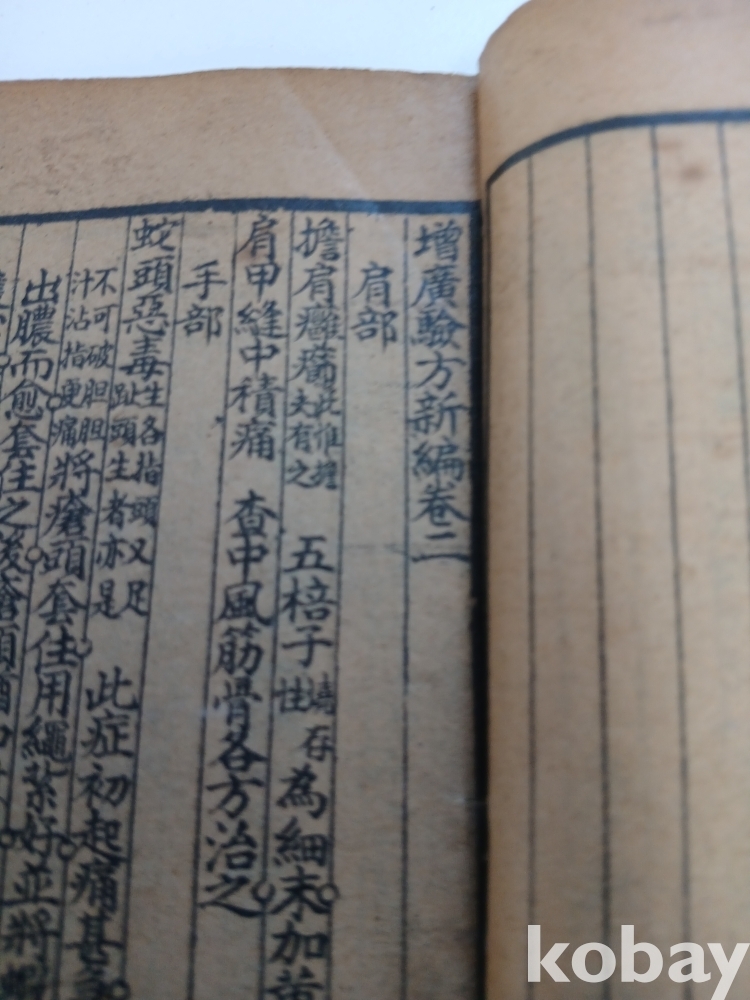 增廣驗方新編卷二
肩部
擔肩癰瘡此惟擔夫有之 五棓子燒存性為細末加黃
肩甲縫中積痛 查中風筋骨各方治之
手部
蛇頭惡毒生各指頭又足趾頭生者亦是 此症初起痛甚
不可破胆胆汁沾指更痛將瘡頭套住用繩紮好並將
出膿而愈套住之後瘡頭
kobay